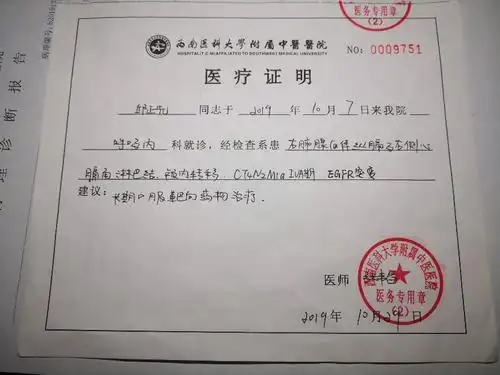 医务专用章
(2)
西南医科大学附属中医医院
NO: 0009751
医疗证明
同志于 2019 年 10 月 7 日来我院
呼吸内 科就诊,经检查系患 右肺腺癌伴纵膈及右侧心
膈角淋巴结、肺内转移. CT4N2M1a IVA期 EGFR突变
建议: 长期口服靶向药物治疗.
医师
西南医科大学附属中医医院
医务专用章
(2)
2019年 10月29日
理诊断报告